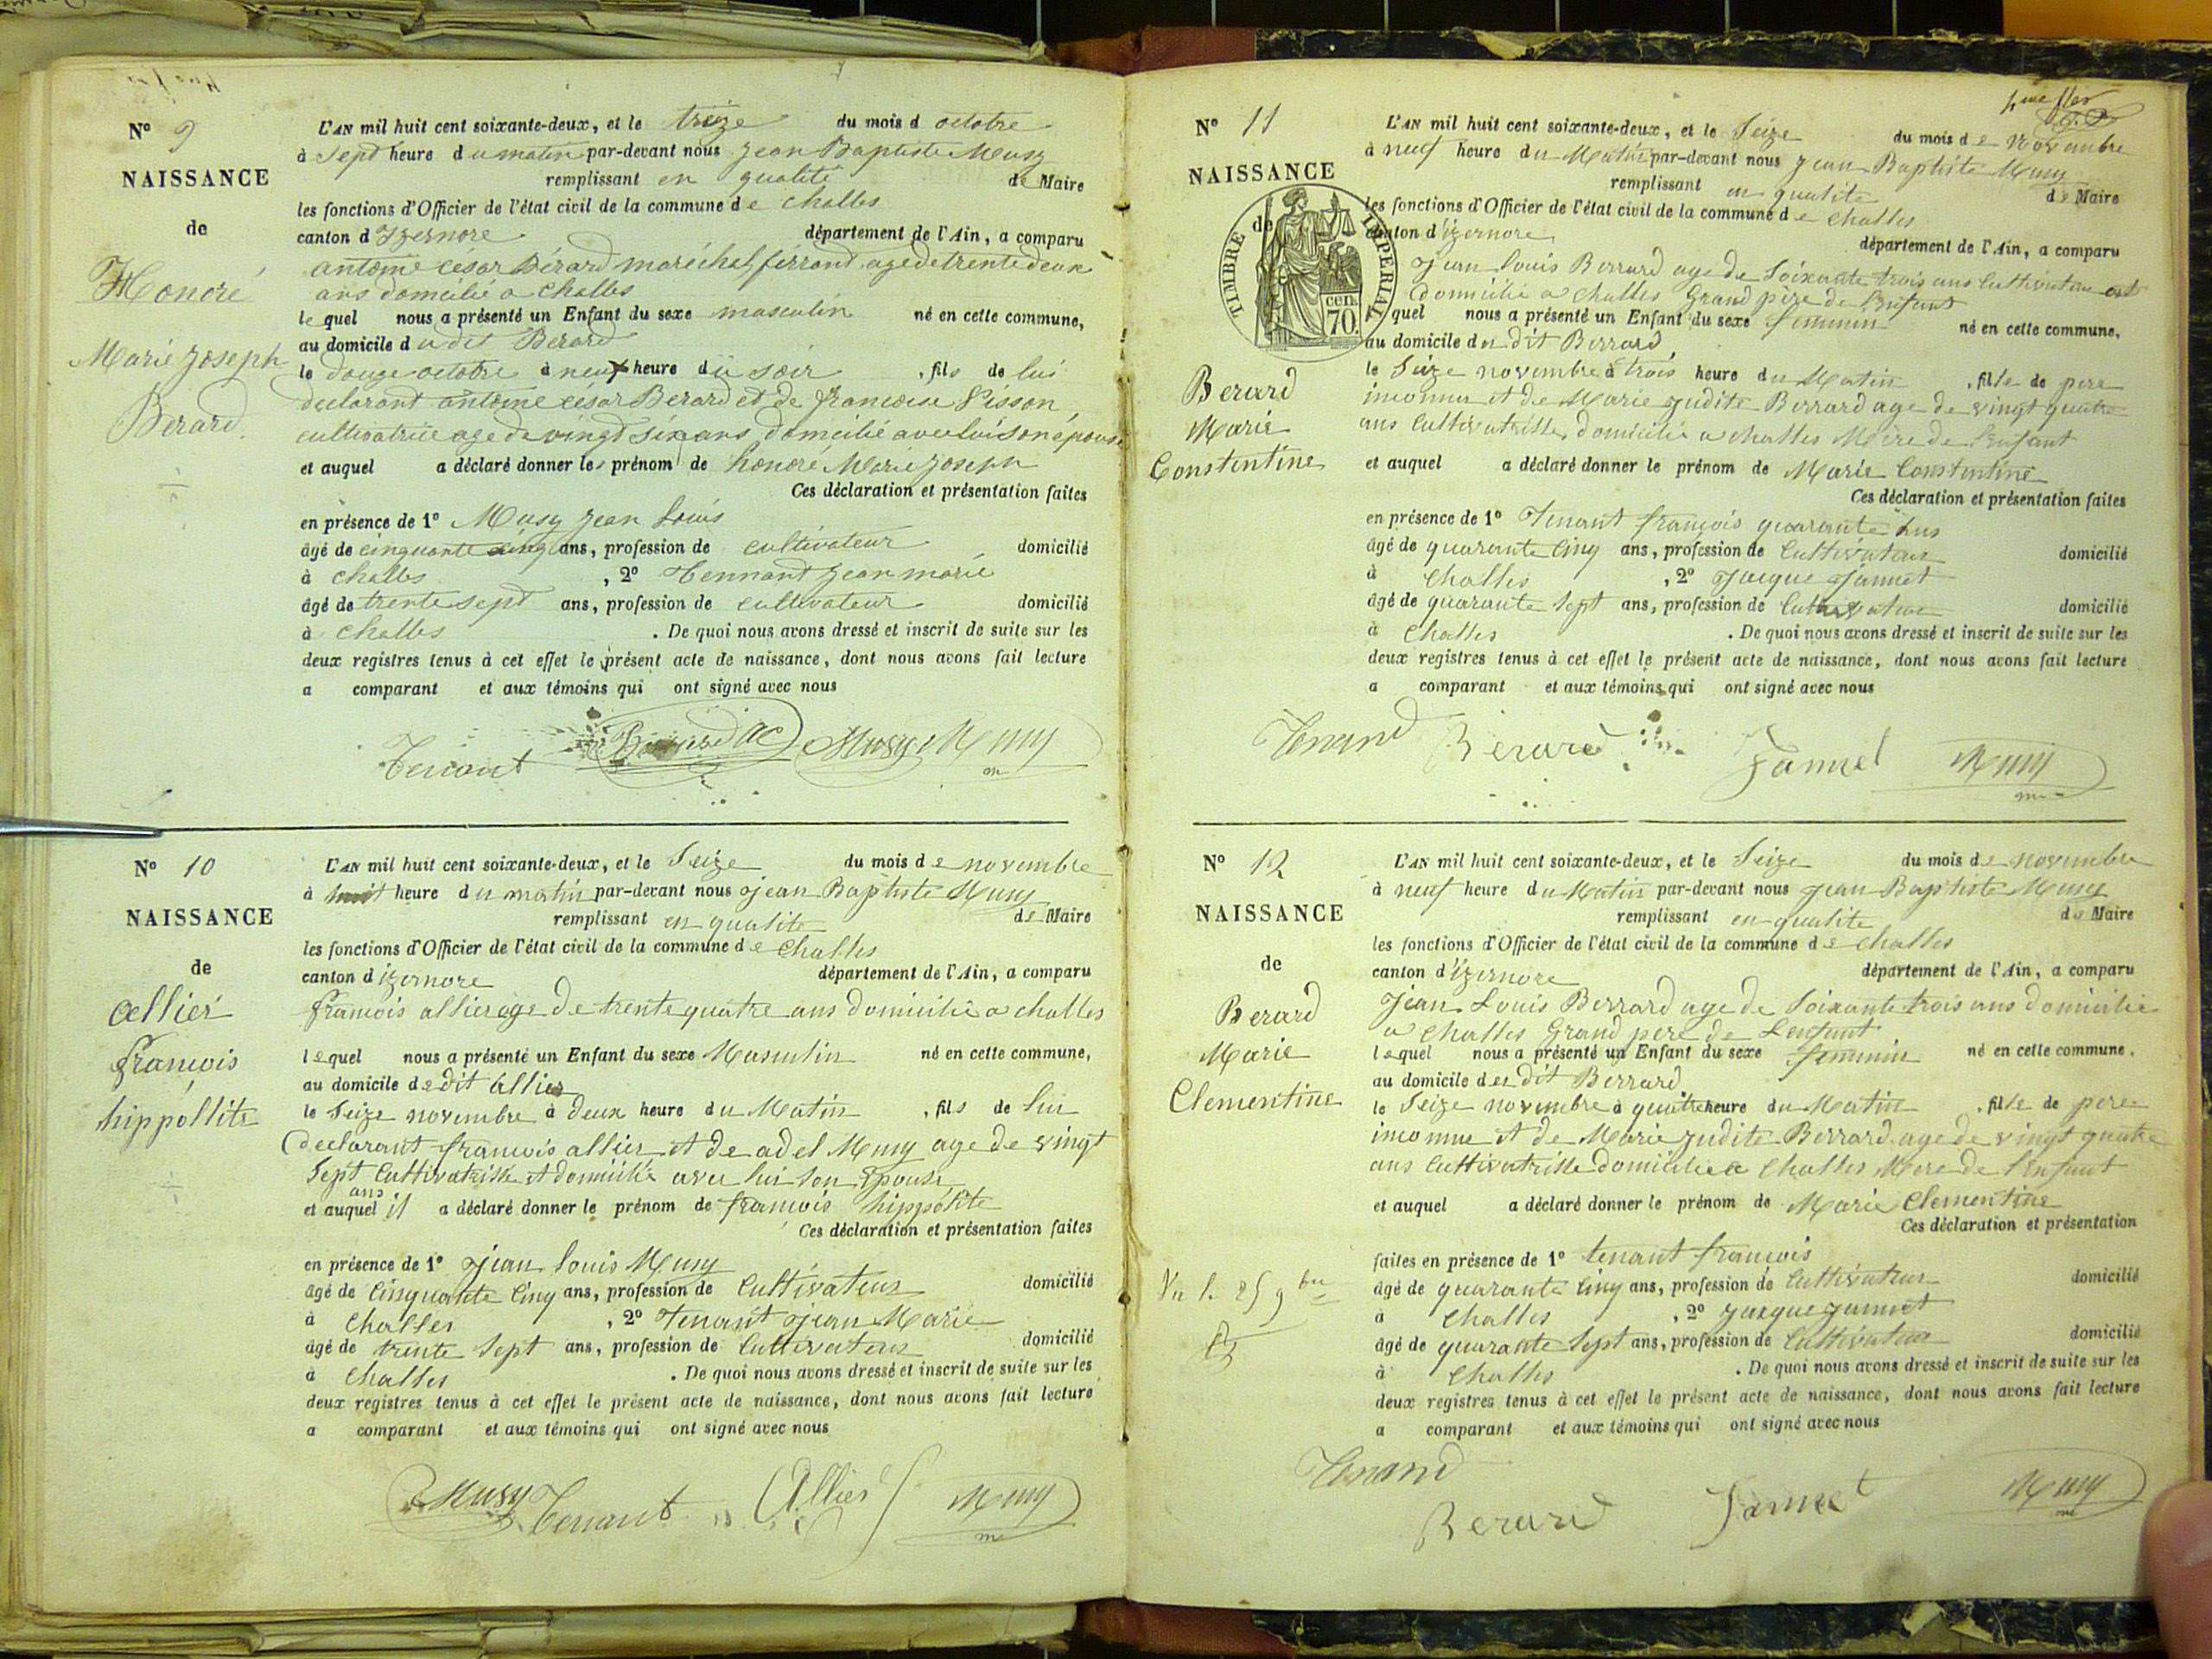 N° 9
NAISSANCE
de
Honoré
Marie Joseph
Berard
L'AN mil huit cent soixante-deux, et le treize du mois d octobre
à sept heure du matin par-devant nous jean Baptiste Musy
remplissant en qualité de Maire
les fonctions d'Officier de l'état civil de la commune de challes
canton d'Izernore département de l'Ain, a comparu
antoine césar Bérard maréchal ferrand age de trente deux
ans domicilié a challes
lequel nous a présenté un Enfant du sexe masculin né en cette commune,
au domicile du dit Berard
le douze octobre à neuf heure du soir , fils de lui
declarant antoine césar Berard et de francoise Sisson
cultivatrice age de vingt six ans domicilié avec lui son épouse
et auquel a déclaré donner les prénom de honoré Marie joseph
Ces déclaration et présentation faites
en présence de 1° Musy jean Louis
âgé de cinquante cinq ans, profession de cultivateur domicilié
à challes , 2° Tennant jean marie
âgé de trente sept ans, profession de cultivateur domicilié
à challes . De quoi nous avons dressé et inscrit de suite sur les
deux registres tenus à cet effet le présent acte de naissance, dont nous avons fait lecture
a comparant et aux témoins qui ont signé avec nous
Tenant Berard ac Musy Musy
N° 10
NAISSANCE
de
allier
françois
hippollite
L'AN mil huit cent soixante-deux, et le Seize du mois de novembre
à huit heure du matin par-devant nous jean Baptiste Musy
remplissant en qualite de Maire
les fonctions d'Officier de l'état civil de la commune de Challes
canton d'izernore département de l'Ain, a comparu
françois allier age de trente quatre ans domicilié a challes
lequel nous a présenté un Enfant du sexe Masculin né en cette commune,
au domicile de dit allier
le Seize novembre à deux heure du Matin , fils de lui
declarant françois allier et de adel Musy age de vingt
Sept Cultivatrisse et domicilié avec lui son Epouse
ans
et auquel il a déclaré donner le prénom de françois hippolite
Ces déclaration et présentation faites
en présence de 1° jean louis Musy
âgé de Cinquante Cinq ans, profession de Cultivateur domicilié
à Challes , 2° Tenant jean Marie
âgé de trente Sept ans, profession de Cultivateur domicilié
à Challes . De quoi nous avons dressé et inscrit de suite sur les
deux registres tenus à cet effet le présent acte de naissance, dont nous avons fait lecture
a comparant et aux témoins qui ont signé avec nous
Musy Tenant Allier f Musy
N° 11
NAISSANCE
de
TIMBRE IMPERIAL
cen.
70.
Berard
Marie
Constentine
L'AN mil huit cent soixante-deux, et le Seize du mois de novembre
à neuf heure du Matin par-devant nous jean Baptiste Musy
remplissant en qualite de Maire
les fonctions d'Officier de l'état civil de la commune de challes
canton d'izernore département de l'Ain, a comparu
jean louis Berrard age de Soixante trois ans Cultivateur
domicilié a challes Grand père de lenfant
quel nous a présenté un Enfant du sexe feminin né en cette commune.
au domicile du dit Berrard
le Seize novembre à trois heure du Matin , fille de pere
inconnu et de Marie judite Berrard age de vingt quatre
ans Cultivatrisse domicilié a challes Mère de lenfant
et auquel a déclaré donner le prénom de Marie Constentine
Ces déclaration et présentation faites
en présence de 1° Tenant françois quarante
âgé de quarante Cinq ans, profession de Cultivateur domicilié
à Challes , 2° jacque jannet
âgé de quarante Sept ans, profession de Cultivateur domicilié
à Challes . De quoi nous avons dressé et inscrit de suite sur les
deux registres tenus à cet effet le présent acte de naissance, dont nous avons fait lecture
a comparant et aux témoins qui ont signé avec nous
Tenand Berard Jannet Musy
N° 12
NAISSANCE
de
Berard
Marie
Clementine
L'AN mil huit cent soixante-deux, et le Seize du mois de novembre
à neuf heure du Matin par-devant nous jean Baptiste Musy
remplissant en qualite de Maire
les fonctions d'Officier de l'état civil de la commune de challes
canton d'izernore département de l'Ain, a comparu
jean Louis Berrard age de Soixante trois ans domicilié
a challes Grand pere de Lenfant
lequel nous a présenté un Enfant du sexe feminin né en cette commune.
au domicile du dit Berrard
le Seize novembre à quatre heure du Matin , fille de pere
inconnu et de Marie judite Berrard age de vingt quatre
ans Cultivatrisse domicilié a Challes Mere de lenfant
et auquel a déclaré donner le prénom de Marie Clementine
Ces déclaration et présentation
faites en présence de 1° tenant françois
âgé de quarante Cinq ans, profession de Cultivateur domicilié
à Challes , 2° jacque jannet
âgé de quarante Sept ans, profession de Cultivateur domicilié
à Challes . De quoi nous avons dressé et inscrit de suite sur les
deux registres tenus à cet effet le présent acte de naissance, dont nous avons fait lecture
a comparant et aux témoins qui ont signé avec nous
Tenand
Berard Jannet Musy